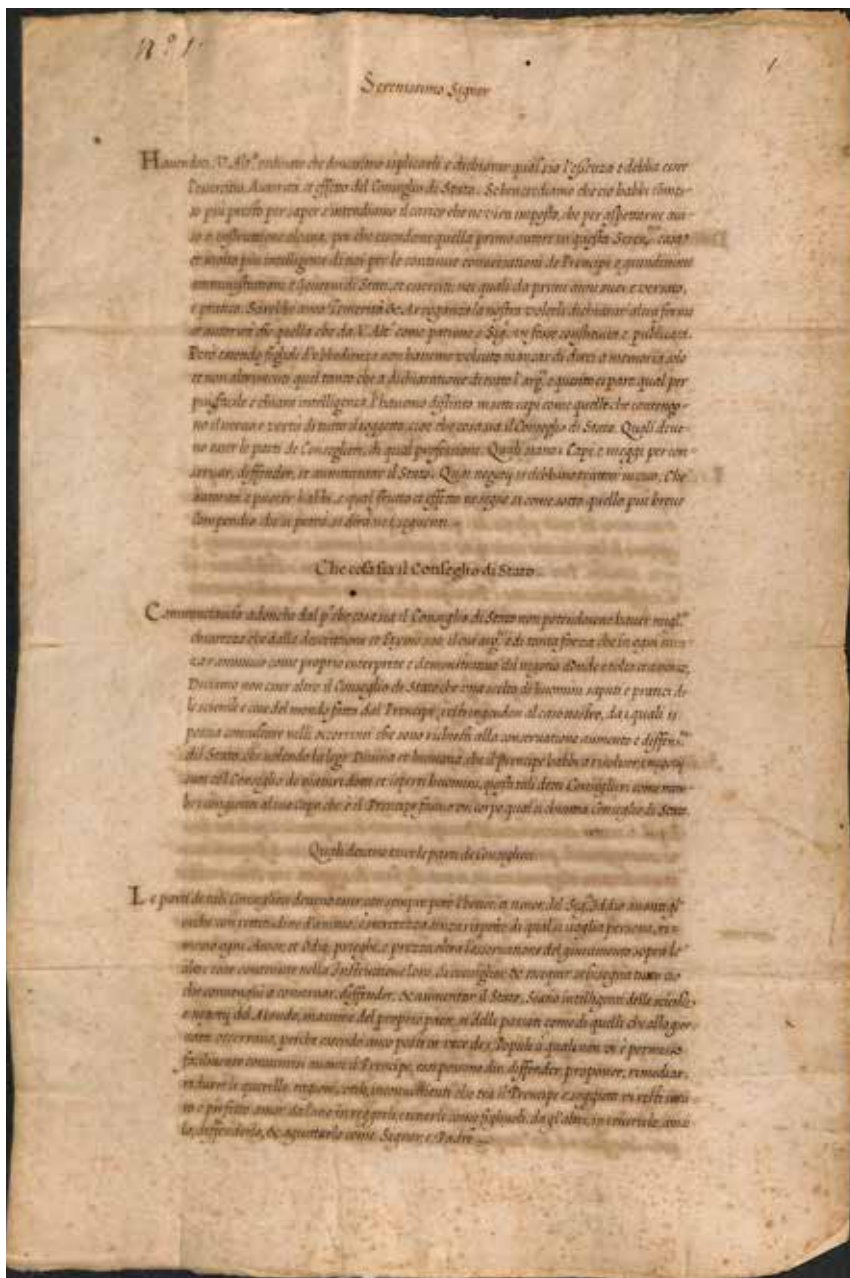 N.º 1.
1
Serenissimo Signor
Havendoci V. Alt.ª ordinato che dovessimo esplicarli e dichiarar qual sia l'essenza e debbia esser
l'essercitio, Autorità, et effetto del Conseglio di Stato. Sebene crediamo che ciò habbi commes-
so più presto per saper s'intendiamo il carico che ne vien imposto, che per aspettarne avi-
so o instruttione alcuna, poi che essendone quella primo autore in questa Seren.ma casa
et molto più intelligente di noi per le continue conversationi de Principi e grandissimi
amministrationi e Governi di Stati, et eserciti, nei quali da primi anni suoi è versato,
e pratico. Sarebbe anco Temerità & Arroganza la nostra volerli dichiarar altra forma
et autorità che quella che da V. Alt.ª come patrone e Sig.re vi fosse constituita e publicata.
Però essendo figlioli d'obbedienza non havemo voluto mancar di dirci a memoria solo
et non altrimenti quel tanto che a dichiaratione di tutto l'arg.to e quesito ci pare, qual per
più facile e chiara intelligenza l'havemo distinto in sette capi come quelle che contengo-
no il vero e virtù di tutto il soggetto, cioè che cosa sia il Conseglio di Stato. Quali deve-
no esser le parti de Conseglieri, di qual professione. Quali siano i Capi, e meggi per con-
servar, diffender, et aumentare il Stato. Quai negotij si debbino trattar in esso. Che
autorità e poter habbi, e qual frutto et effetto ne segue si come sotto quello più breve
Compendio che si potrà, si dirà ne i seguenti.
Che cosa sia il Conseglio di Stato.
Comminciando adonche dal p.º che cosa sia il Conseglio di Stato non potendosene haver migl.re
chiarezza che dalla descrittione et Etymo suo, il cui arg.to è di tanta forza che in ogni
Diciamo non esser altro il Conseglio di Stato che una scelta di huomini saputi e pratici de
le scienze e cose del mondo fatta dal Principe, restringendosi al caso nostro, da i quali si
possa consultare nelli occorrenze che sono richiesti alla conservatione aumento e diffen.ne
dil Stato, che volendo la lege Divina et humana che il Principe habbia a risolver i negotij
suoi col Conseglio de maturi dotti et esperti huomini, questi tali detti Consiglieri come mem-
bri congionti al suo Capo che è il Principe fanno un corpo qual si chiama Conseglio di Stato.
Quali devano esser le parti de Conseglieri.
Le parti de tali Conseglieri deveno esser con sempre però l'honor, et timor del Sig.r Iddio avanti gl'
occhi con rettitudine d'animo, e secretezza senza rispetto di qual si voglia persona, ri-
mosso ogni Amor, et Odio, prieghi, e prezzo, oltra l'osservatione del giuramento sopra le
altre cose contenute nella Instruttione loro, di consigliar, & essequir se bisogna tutto ciò
che convenghi a conservar, diffender, & aumentar il Stato. Siano intelligenti delle scienze
e negotij del Mondo, massime del proprio paese, sì delli passati come di quelli che alla gior-
nata occorrano, perchè essendo anco posti in voce de i Popoli a quali non vi è permesso
facilmente conversar avanti il Principe, essi possono dir, diffender, proponer, rimediar,
ridurre le querelle, ragioni, utili, inconvenienti che tra il Prencipe e soggietti vi resti unio
ro e perfetto amor da l'uno in regerli, e tenerli come figliuoli, da gl'altri, in riverirlo, amar
lo, diffenderlo, & agiuttarlo come Signor, e Padre.